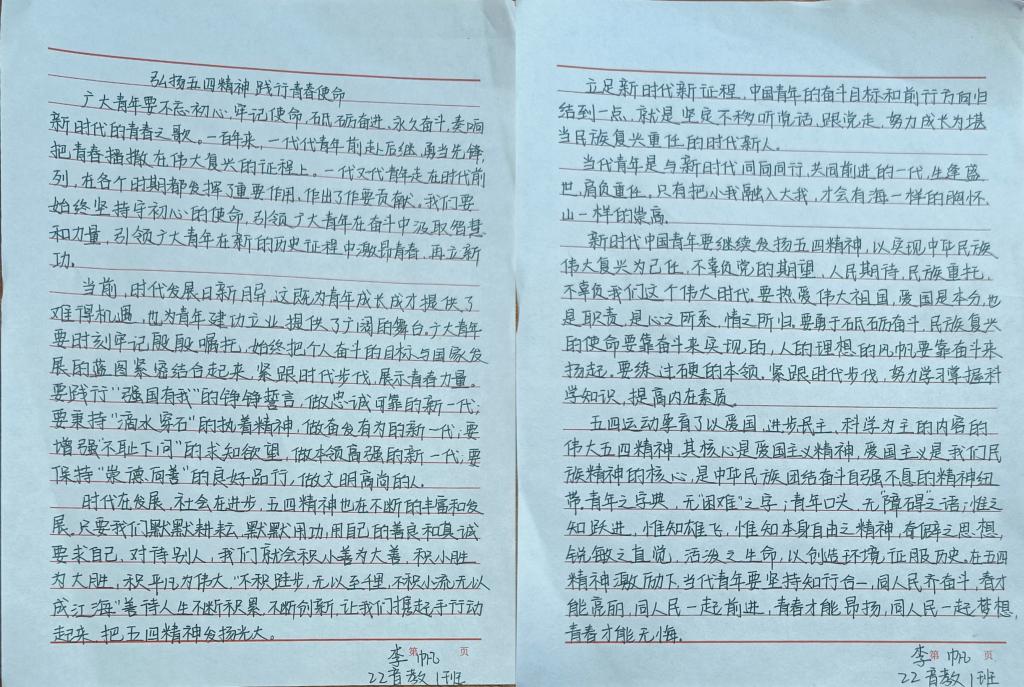 弘扬五四精神 践行青春使命
广大青年要不忘初心、牢记使命、砥砺奋进、永久奋斗,奏响
新时代的青春之歌。一百年来,一代代青年前赴后继,勇当先锋,
把青春播撒在伟大复兴的征程上。一代又代青年走在时代前
列,在各个时期都发挥了重要作用,作出了作要贡献。我们要
始终坚持守初心的使命,引领广大青年在奋斗中汲取智慧
和力量,引领广大青年在新的历史征程中激昂青春,再立新
功。
当前,时代发展日新月异,这既为青年成长成才提供了
难得机遇,也为青年建功立业提供了广阔的舞台。广大青年
要时刻牢记殷殷嘱托,始终把个人奋斗的目标与国家发
展的蓝图紧密结合起来,紧跟时代步伐,展示青春力量。
要践行“强国有我”的铮铮誓言,做忠诚可靠的新一代;
要秉持“滴水穿石”的执着精神,做奋发有为的新一代;要
增强“不耻下问”的求知欲望,做本领高强的新一代;要
保持“崇德向善”的良好品行,做文明高尚的人。
时代在发展,社会在进步,五四精神也在不断的丰富和发
展。只要我们默默耕耘,默默用功,用自己的善良和真诚
要求自己,对待别人,我们就会积小善为大善,积小胜
为大胜,积平凡为伟大,“不积跬步,无以至千里,不积小流,无以
成江海”善待人生不断积累,不断创新,让我们握起手行动
起来,把五四精神发扬光大。
第 页
李帆
22音教1班
立足新时代新征程,中国青年的奋斗目标和前行方向归
结到一点,就是坚定不移听党话、跟党走,努力成长为堪
当民族复兴重任的时代新人。
当代青年是与新时代同向同行、共同前进的一代,生逢盛
世,肩负重任。只有把小我融入大我,才会有海一样的胸怀,
山一样的崇高。
新时代中国青年要继续发扬五四精神,以实现中华民族
伟大复兴为己任,不辜负党的期望、人民期待、民族重托,
不辜负我们这个伟大时代。要热爱伟大祖国,爱国是本分,也
是职责,是心之所系、情之所归。要勇于砥砺奋斗,民族复兴
的使命要靠奋斗来实现的,人的理想的风帆要靠奋斗来
扬起。要练过硬的本领。紧跟时代步伐,努力学习掌握科
学知识,提高内在素质。
五四运动孕育了以爱国、进步民主、科学为主的内容的
伟大五四精神,其核心是爱国主义精神,爱国主义是我们民
族精神的核心,是中华民族团结奋斗自强不息的精神纽
带,青年之字典,无“困难”之字;青年口头,无“障碍”之语;惟之
知跃进,惟知雄飞,惟知本身自由之精神,奇僻之思想,
锐敏之直觉,活泼之生命,以创造环境,征服历史。在五四
精神激励下,当代青年要坚持知行合一,同人民齐奋斗,春才
能亮丽,同人民一起前进,青春才能昂扬,同人民一起梦想,
青春才能无悔。
第 页
李帆
22音教1班